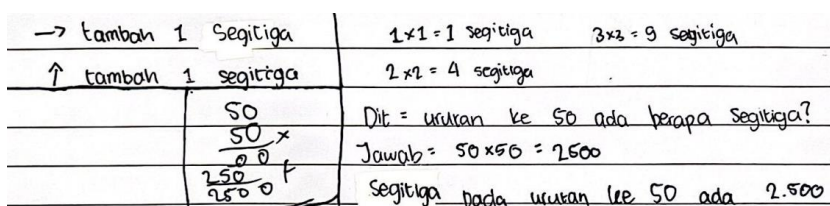 → tambah 1 Segitiga
↑ tambah 1 segitiga
50
50 ×
00
250 +
2500
1×1 = 1 segitiga 3×3 = 9 segitiga
2×2 = 4 segitiga
Dit = urutan ke 50 ada berapa segitiga?
Jawab = 50×50 = 2500
Segitiga pada urutan ke 50 ada 2.500